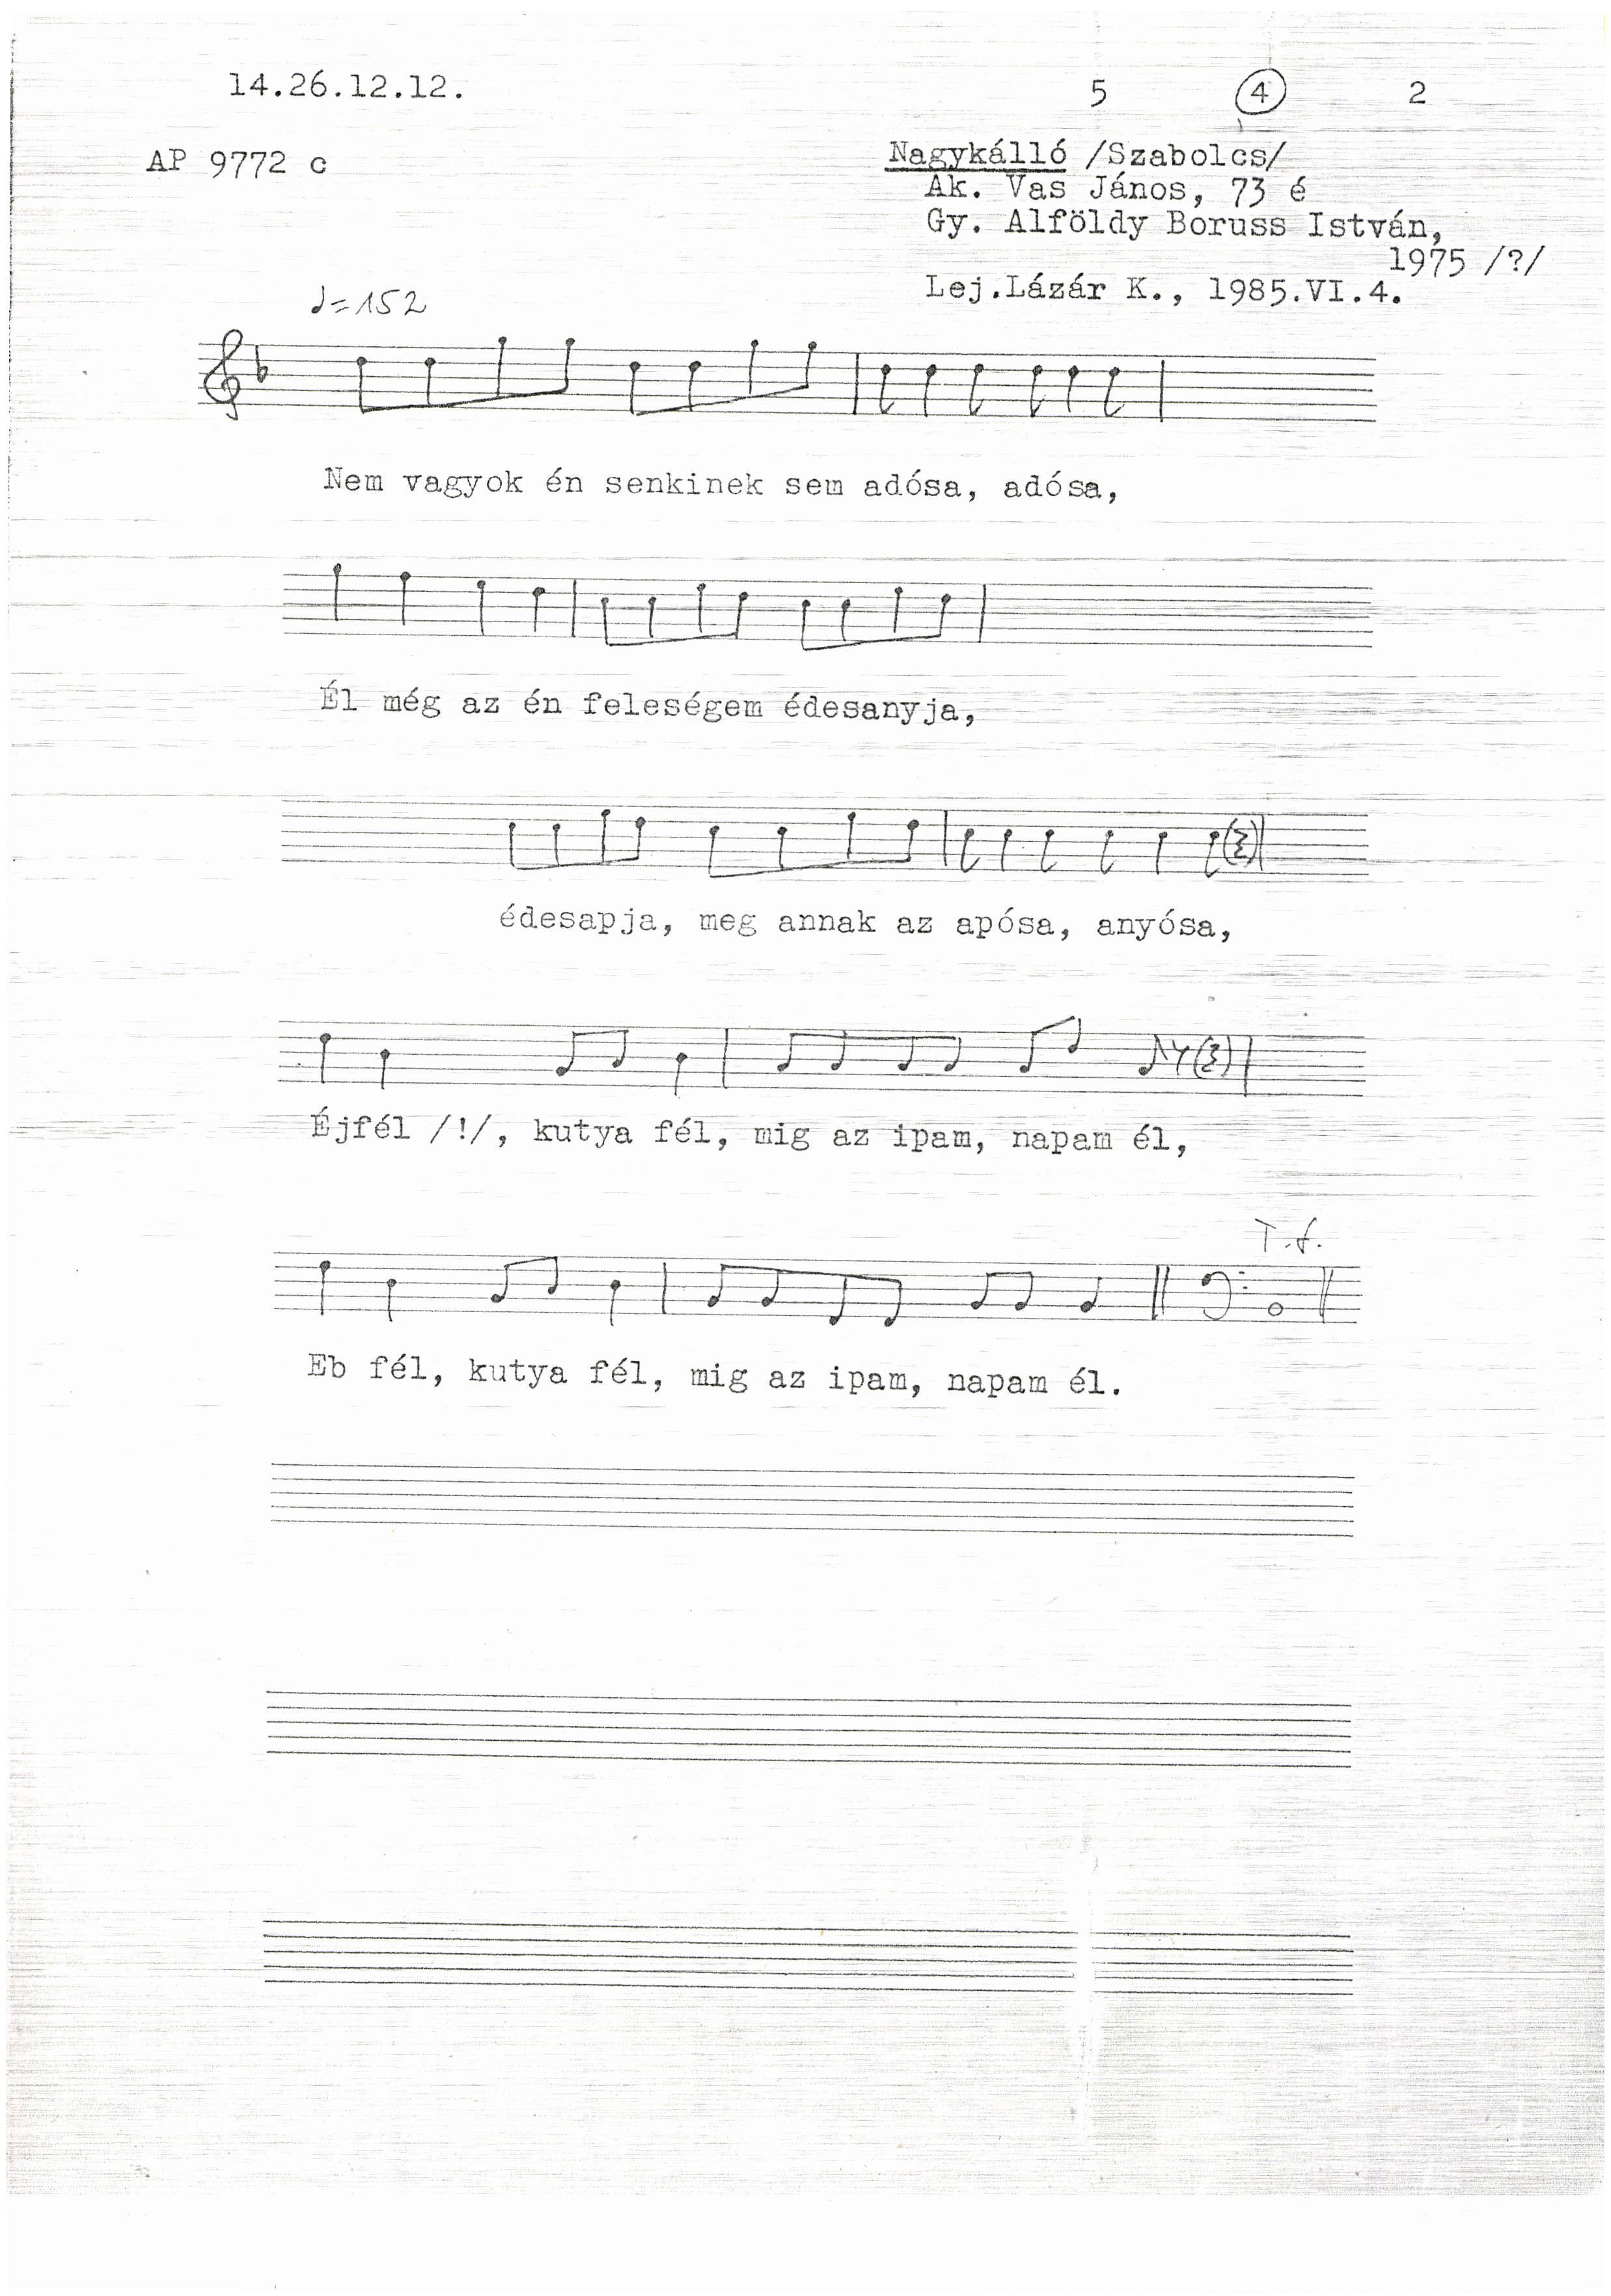 14.26.12.12.
5 4 2
AP 9772 c
Nagykálló /Szabolcs/
Ak. Vas János, 73 é
Gy. Alföldy Boruss István,
1975 /?/
Lej.Lázár K., 1985.VI.4.
♩=152
Nem vagyok én senkinek sem adósa, adósa,
Él még az én feleségem édesanyja,
édesapja, meg annak az apósa, anyósa,
Éjfél /!/, kutya fél, mig az ipam, napam él,
T.f.
Eb fél, kutya fél, mig az ipam, napam él.